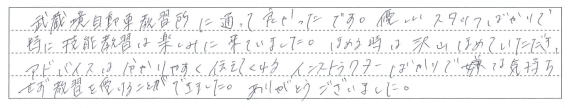 武蔵境自動車教習所に通って良かったです。優しいスタッフばかりで
特に技能教習は楽しみに来ていました。ほめる時は沢山ほめていただき、
アドバイスは分かりやすく伝えてくれるインストラクターばかりで嫌な気持ち
せず教習を受けることができました。ありがとうございました。